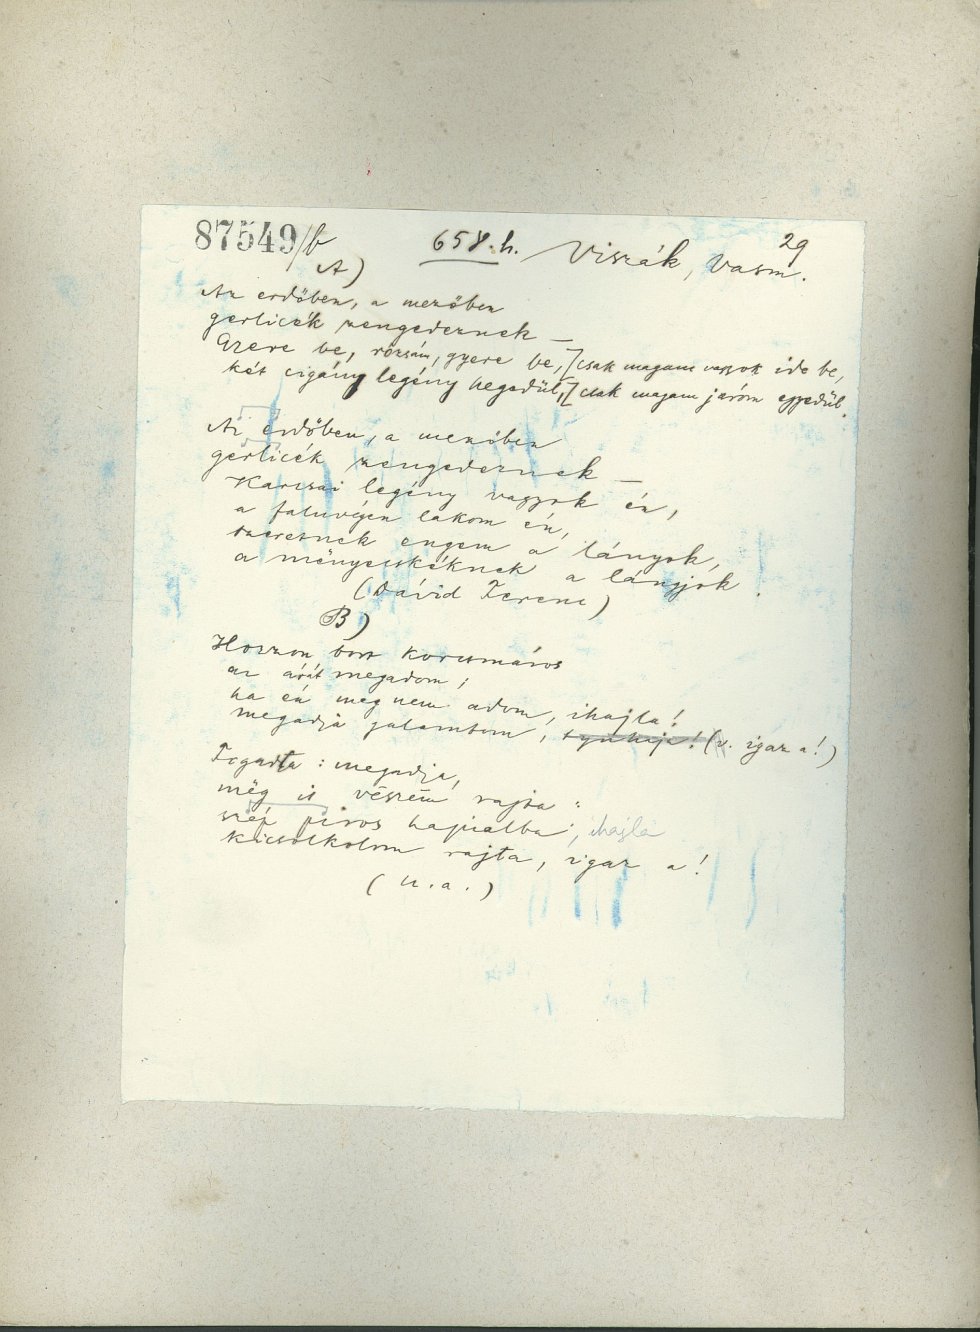 87549/b 658.h. Viszák, Vasm. 29
A)
Az erdőben, a mezőben
gerlicék zengedeznek —
Gyere be, rózsám, gyere be, csak magam vagyok ide be,
két cigány legény hegedül, csak magam járom egyedül.
Az erdőben, a mezőben
gerlicék zengedeznek —
Karcsai legény vagyok én,
a faluvégen lakom én,
szeretnek engem a lányok,
a mënyecskéknek a lányjok.
(Dávid Ferenc)
B)
Hozzon bort korcsmáros
az árát megadom;
ha én meg nem adom, ihajla!
megadja galambom, tyuhaja! (v. igaz a!)
Fogadta: megadja,
még is vészëm rajta:
szép piros hajnalba, ihajla
kicsólkolom rajta, igaz a!
(u.a.)